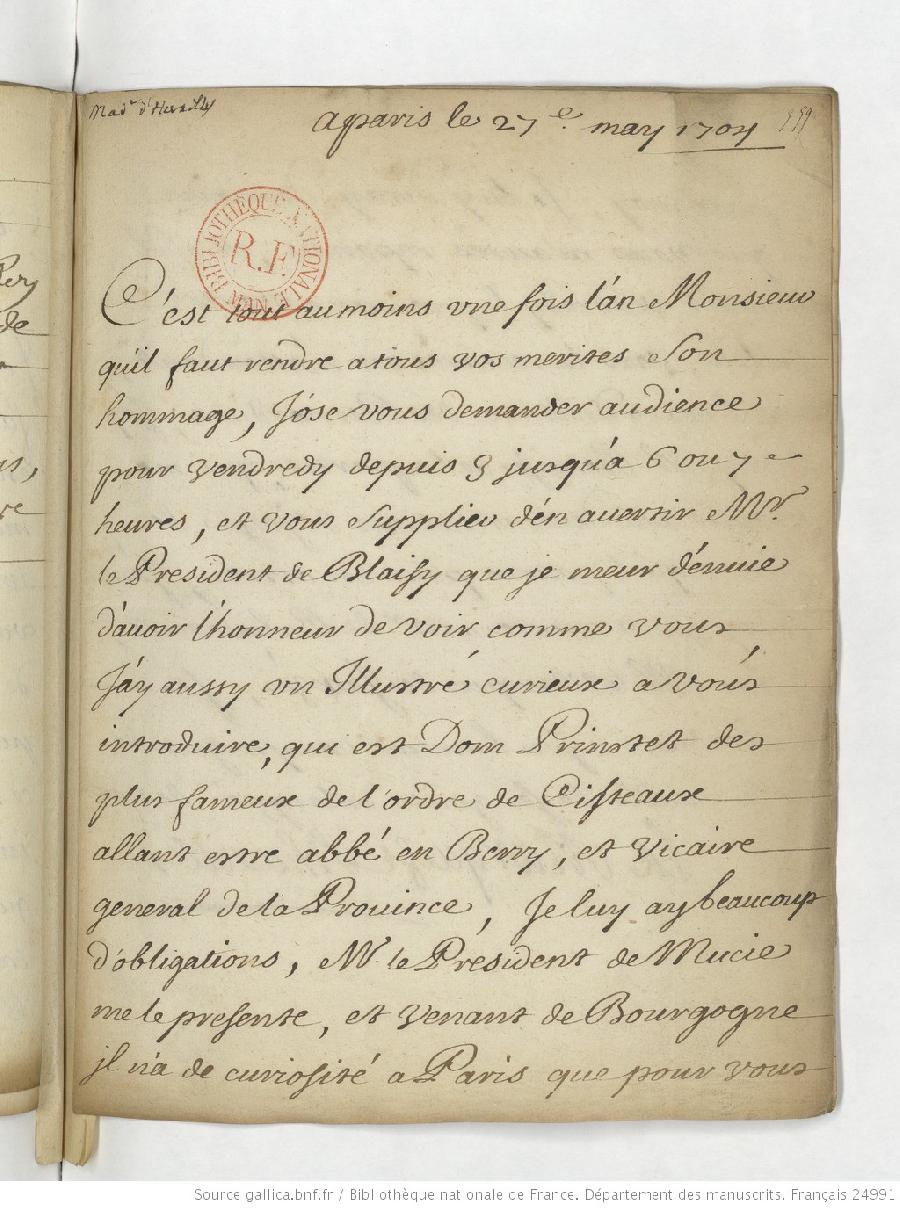 Mad.e d'Hervilly
aparis le 27e. may 1704
BIBLIOTHEQUE NATIONALE
R.F.
MAN
C'est tout aumoins vne fois l'an Monsieur
qu'il faut rendre atous vos merites Son
hommage, J'ose vous demander audience
pour vendredy depuis 3 jusqu'a 6 ou 7
heures, et vous Supplier d'en auertir Mr.
le President de Blaisy que je meur d'enuie
d'auoir l'honneur de voir comme vous,
J'ay aussy vn Illustre curieux a vous
introduire, qui est Dom Prinstet des
plus fameux de l'ordre de Cisteaux
allant estre abbé en Berry, et vicaire
general de la Prouince, Je luy ay beaucoup
d'obligations, Mr le President de Mucie
me le presente, et venant de Bourgogne
jl n'a de curiosité a Paris que pour vous
Rey
de
re
Source gallica.bnf.fr / Bibliothèque nationale de France. Département des manuscrits. Français 24991